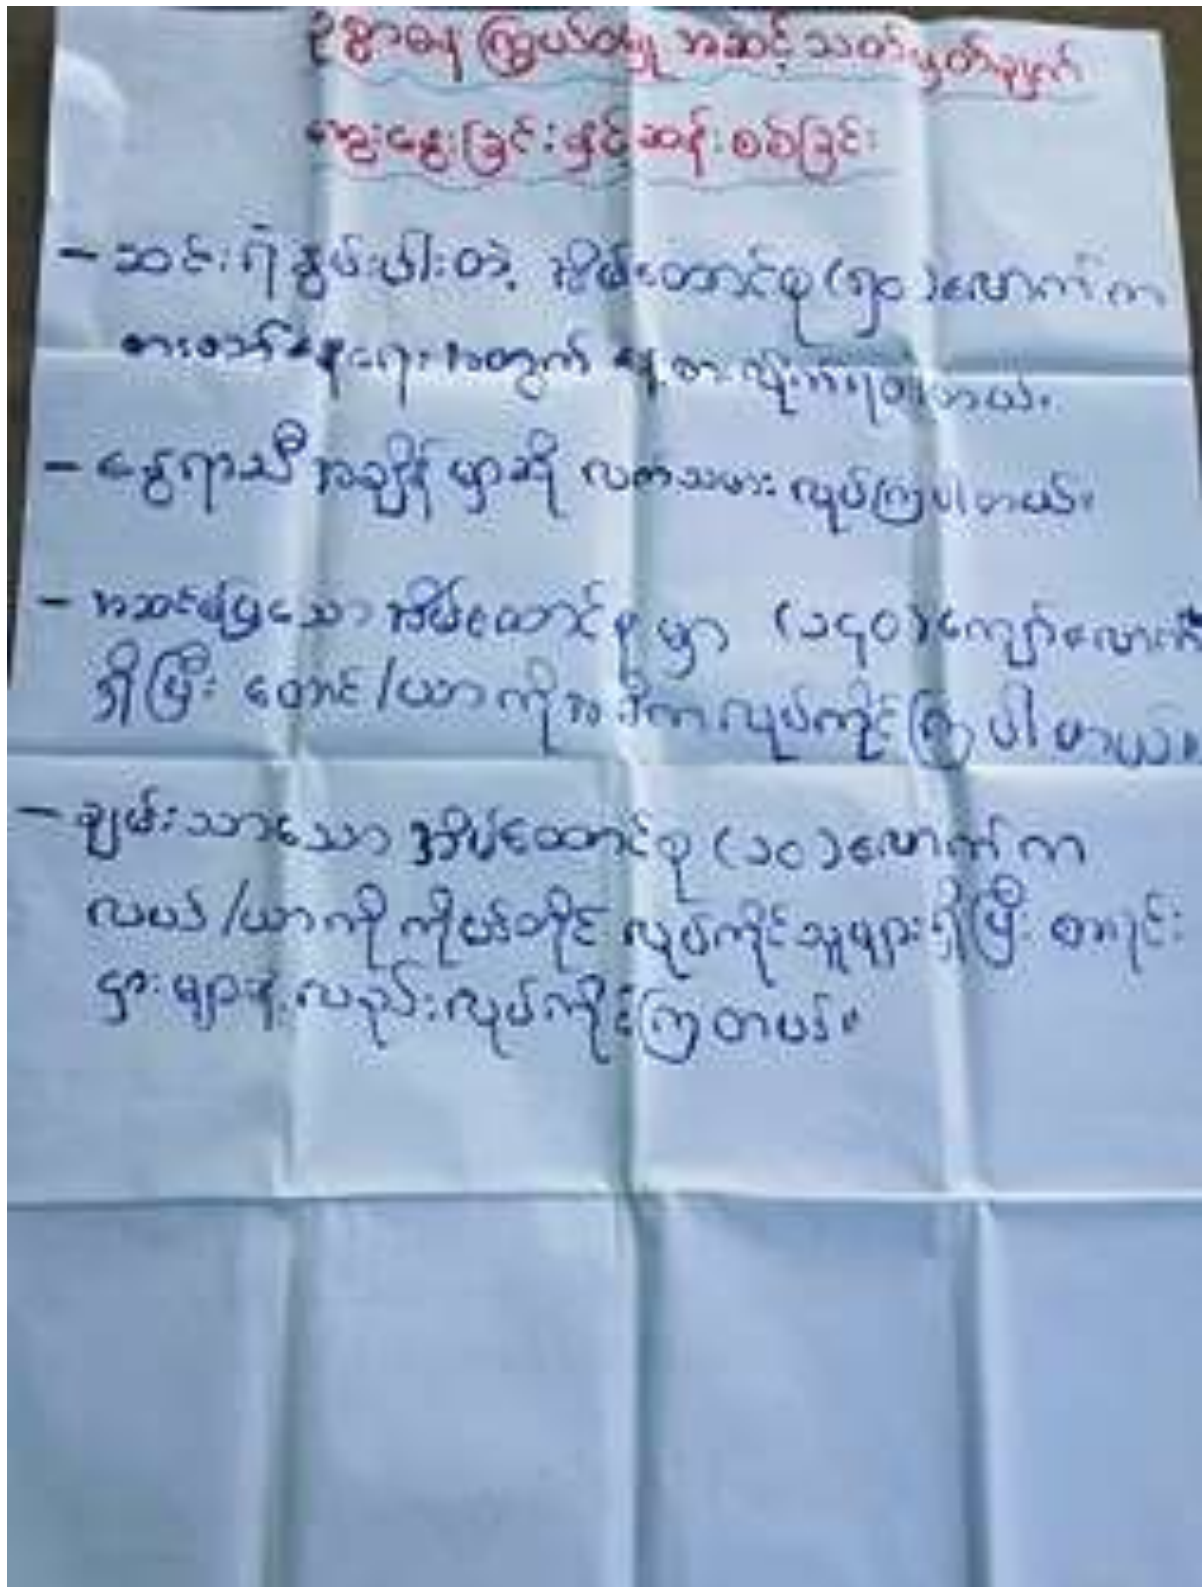 ဥစ္စာဓန ကြွယ်ဝမှု အဆင့် သတ်မှတ်ချက်
ဆွေးနွေးခြင်းနှင့် ဆန်းစစ်ခြင်း
- ဆင်းရဲနွမ်းပါးတဲ့ အိမ်ထောင်စု (၅၀) လောက်က
စားဝတ်နေရေးအတွက် နေ့စားလိုက်ရပါတယ်။
- နွေရာသီ အချိန်မှာဆို လက်သမား လုပ်ကြပါတယ်။
- အဆင်ပြေသော အိမ်ထောင်စုမှာ (၁၄၀) ကျော်လောက်
ရှိပြီး တောင်/ယာကိုအဓိက လုပ်ကိုင်ကြပါတယ်။
- ချမ်းသာသော အိမ်ထောင်စု (၁၀) လောက်က
လယ်/ယာကို ကိုယ်တိုင် လုပ်ကိုင်သူများရှိပြီး စာရင်း
ငှားများနဲ့လည်းလုပ်ကိုင်ကြတယ်။